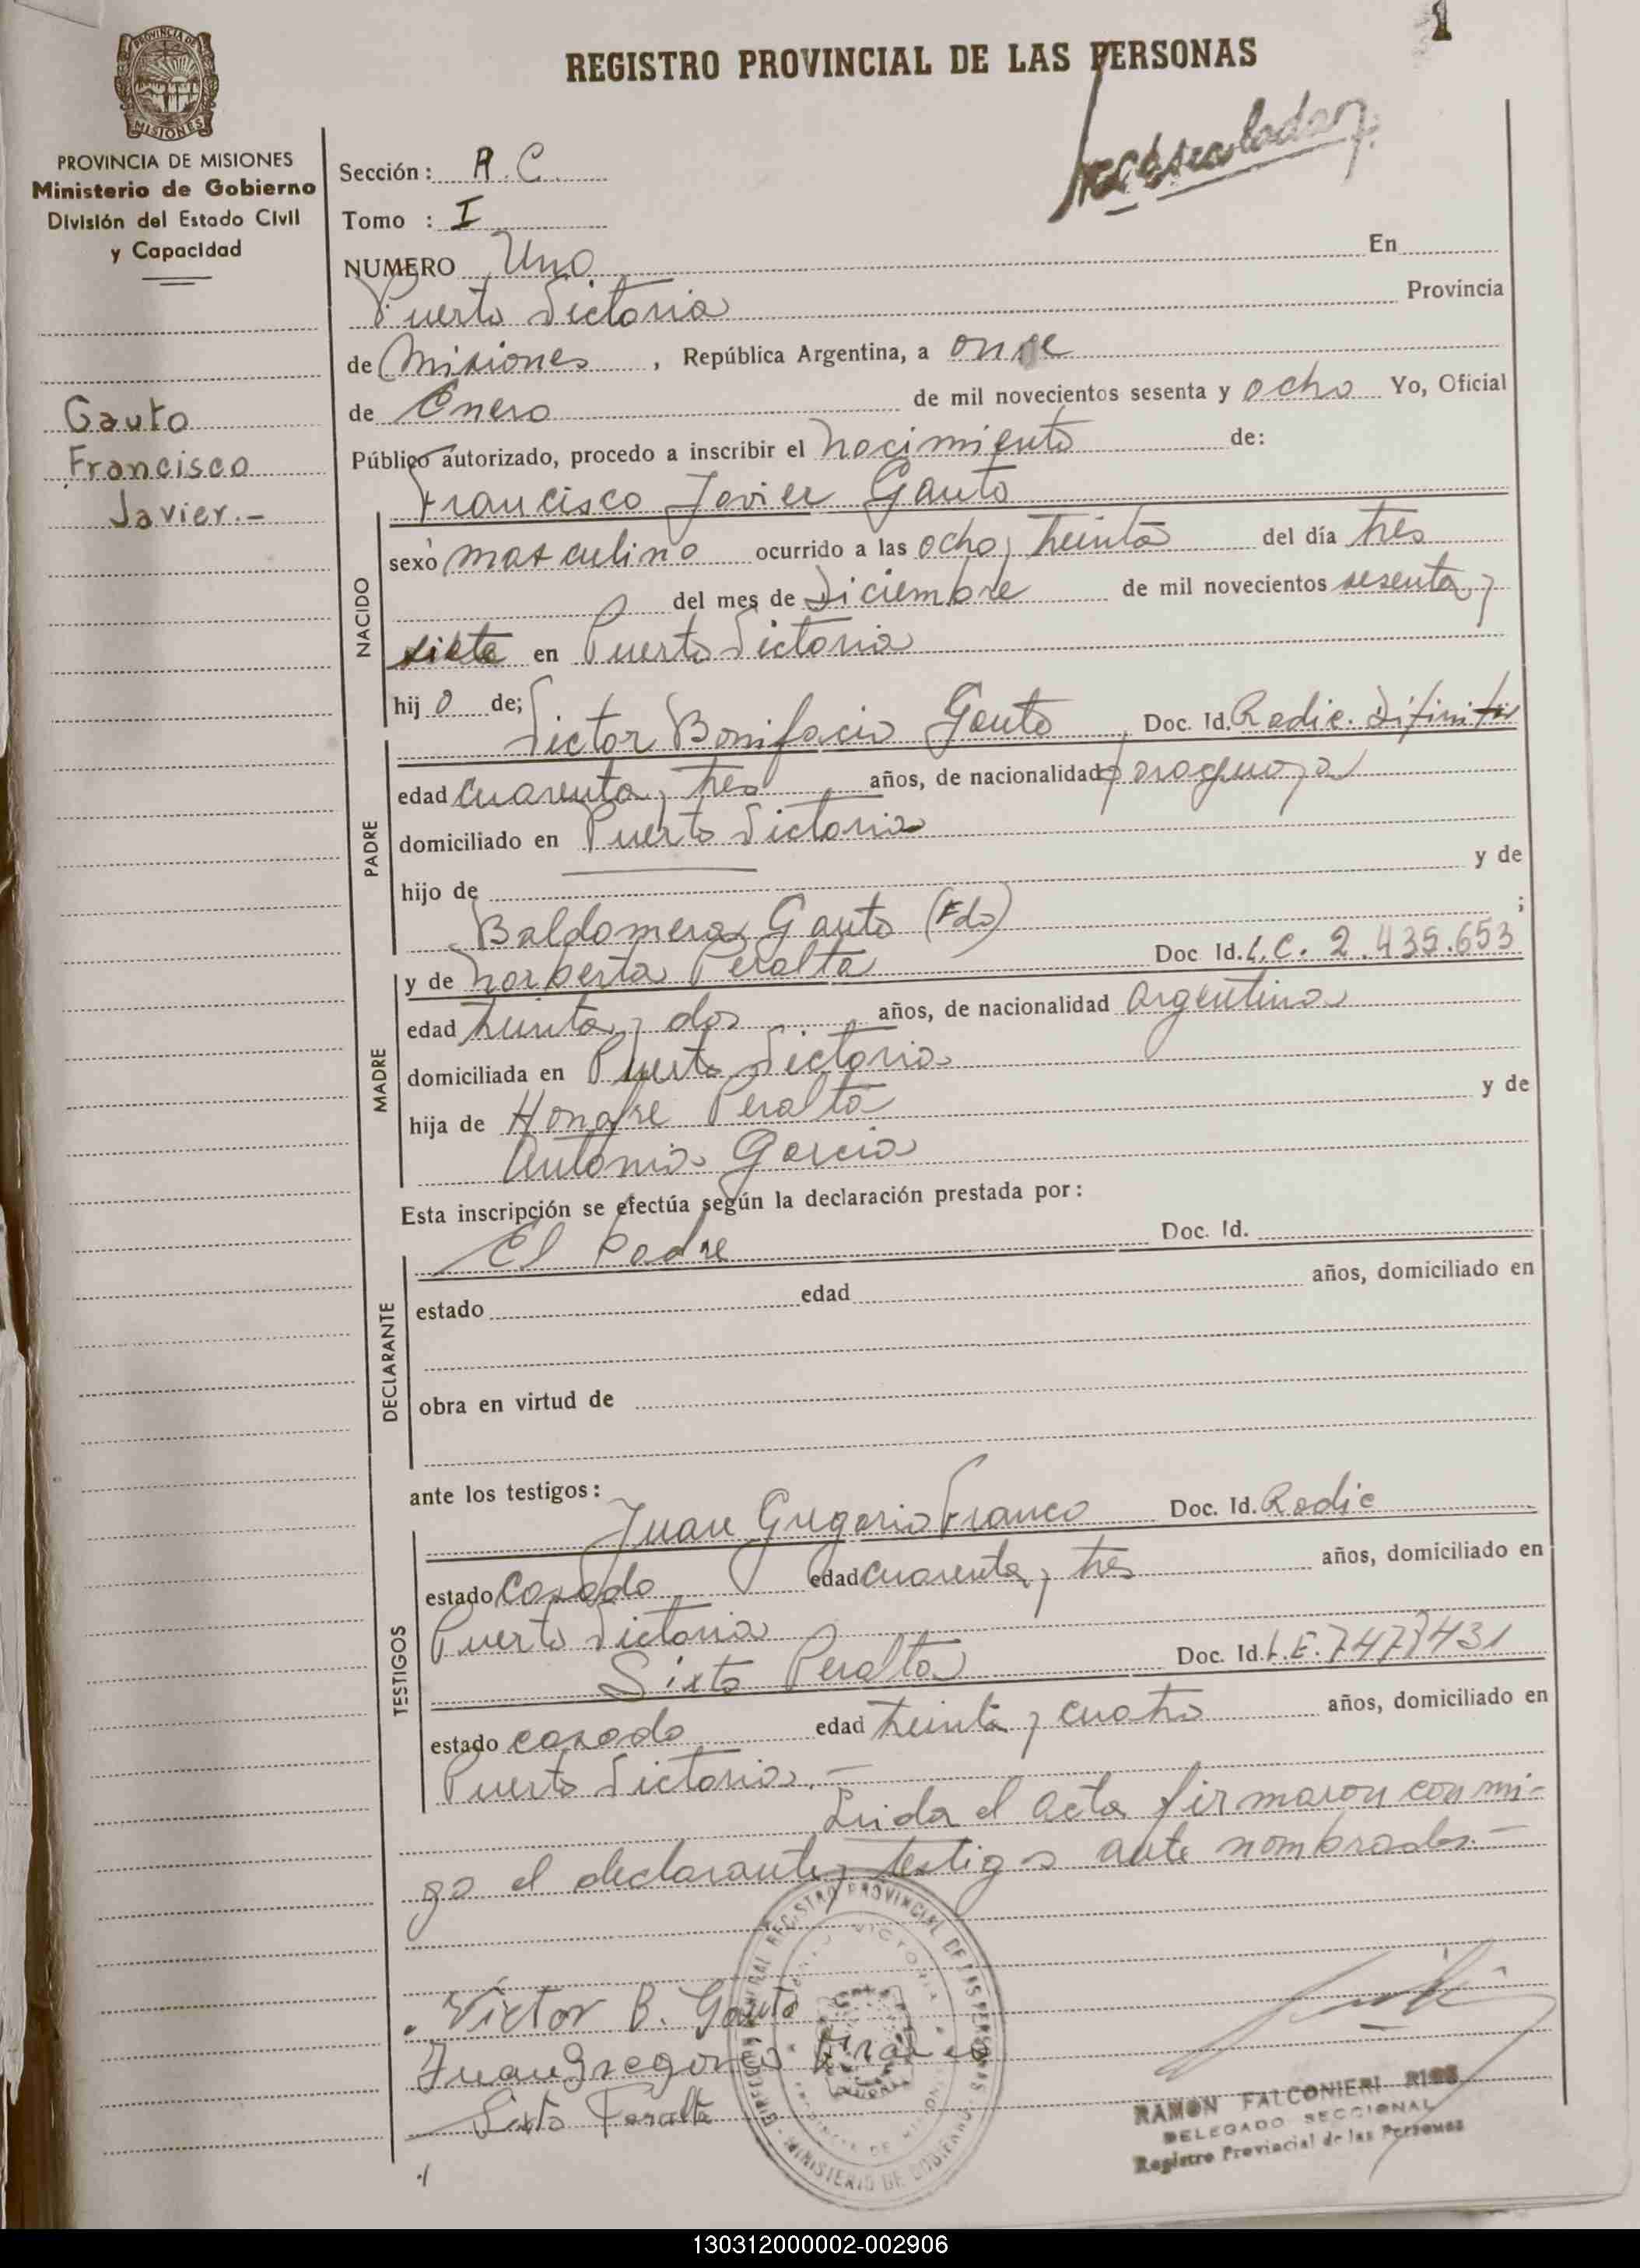 1
REGISTRO PROVINCIAL DE LAS PERSONAS
PROVINCIA DE MISIONES
Ministerio de Gobierno
División del Estado Civil
y Capacidad
Gauto
Francisco
Javier.-
Sección: A.C.
Tomo : I
NUMERO Uno En
Puerto Victoria Provincia
de Misiones, República Argentina, a once
de Enero de mil novecientos sesenta y ocho Yo, Oficial
Público autorizado, procedo a inscribir el nacimiento de:
Francisco Javier Gauto
NACIDO
sexo masculino ocurrido a las ocho y treinta del día tres
del mes de Diciembre de mil novecientos sesenta y
siete en Puerto Victoria
hijo de;
Victor Bonifacio Gauto Doc. Id. Radic.
PADRE
edad cuarenta y tres años, de nacionalidad paraguaya
domiciliado en Puerto Victoria
hijo de y de
Baldomera Gauto (Fda) ;
y de Norberta Peralta Doc Id. L.C. 2.435.653
MADRE
edad treinta y dos años, de nacionalidad argentina
domiciliada en Puerto Victoria
hija de Peralta y de
Antonia Garcia
Esta inscripción se efectúa según la declaración prestada por:
El Padre Doc. Id.
DECLARANTE
estado edad años, domiciliado en
obra en virtud de
ante los testigos:
Juan Gregorio Franco Doc. Id. Radic
TESTIGOS
estado casado edad cuarenta y tres años, domiciliado en
Puerto Victoria
Sixto Peralta Doc. Id. L.E. 7477431
estado casado edad treinta y cuatro años, domiciliado en
Puerto Victoria.-
Leida el acta firmaron conmi-
go el declarante y testigos ante nombrados.-
Victor B. Gauto
Juan Gregorio Franco
Sixto Peralta
REGISTRO PROVINCIAL DE LAS PERSONAS
MINISTERIO DE GOBIERNO
RAMON FALCONIERI RIOS
DELEGADO SECCIONAL
Registro Provincial de las Personas
130312000002-002906